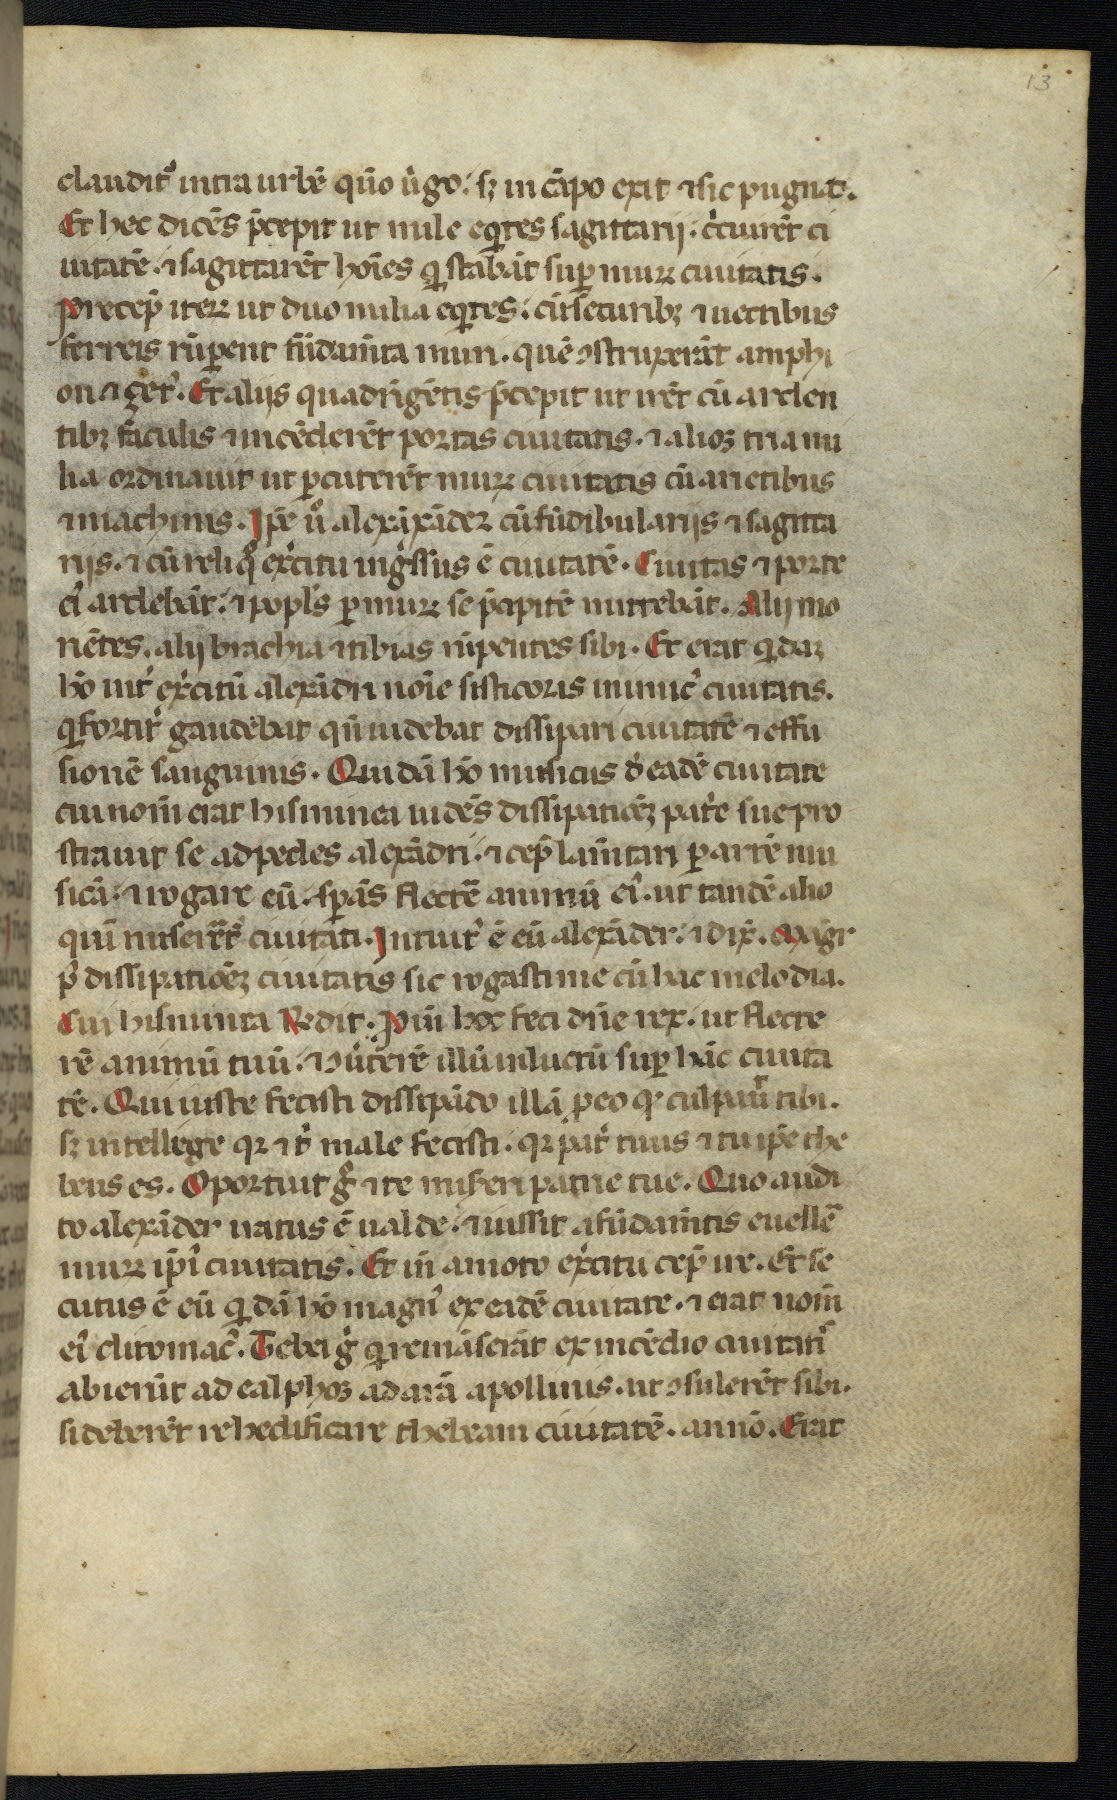 13
claudit᷒ intra urbē quō uͥgo. sꝫ in cāpo exit ⁊ sic pugnat.
Et hec dicēs p̄cepit ut mille eqͥtes sagittarij. cͥcuirēt ci
uitatē. ⁊ sagittarēt hoīes qͥ stabāt suꝑ murꝝ ciuitatis.
Precep̄ iterꝝ ut duo milia eqͥtes. cū securibꝫ ⁊ uectibus
ferreis rūꝑent fūdam̄ta muri. quē ꝯstruxerāt amphi
on ⁊ çet᷒. Et alijs quadrīgētis p̄cepit ut irēt cū arden
tibꝫ faculis ⁊ incēderēt portas ciuitatis. ⁊ alioꝝ tria mi
lia ordinauit ut ꝑcuterēt murꝝ ciuitatis cū arietibus
⁊ machinis. Ip̄e u᷒ alexāxāder cū fūdibularijs ⁊ sagitta
rijs. ⁊ cū reliqͦ exͥcitu ingͥssus ē ciuitatē. Ciuitas ⁊ porte
ei᷒ ardebāt. ⁊ popl̄s ꝑ murꝝ se p̄cipitē mittebāt. Alij mo
riētes. alij brachia ⁊ tibias rūpentes sibi. Et erat qͥdaꝫ
hō int᷒ exͥcitū alexādri noīe sisticoris inimic᷒ ciuitatis.
qͥ fortit᷒ gaudebat qn̄ uidebat dissipari ciuitatē ⁊ effu
sionē sanguinis. Quidā hō musicus d᷒ eadē ciuitate
cui nom̄ erat hisminea uidēs dissipatiōēꝫ pat᷒e sue pro
strauit se ad pedes alexādri. ⁊ cep̄ lam̄tari ꝑ artē mu
sicā. ⁊ rogare eū. sꝑās flectē animū ei᷒. ut tandē alio
quī miserēt᷒ ciuitati. Intuit᷒ ē eū alexāder. ⁊ dix̄. Magr
p᷒ dissipatiōēꝫ ciuitatis sic rogasti me cū hac melodia.
Cui hisminta Redit. Piū hoc feci dn̄e rex. ut flecte
rē animū tuū. ⁊ ꝯu᷒terē illū in luctū suꝑ hāc ciuita
tē. Qui iuste fecisti dissipādo illā ꝑ eo qꝫ culpau᷒t tibi.
sꝫ intellege qꝛ ⁊ t᷒ male fecisti. qꝛ pat᷒ tuus ⁊ tu ip̄e the
beus es. Oportuit gͦ ⁊ te miseri patrie tue. Quo audi
to alexāder iratus ē ualde. ⁊ iussit a fūdam̄tis euellē
murꝝ ip̄i᷒ ciuitatis. Et iñ amoto exͥcitu cep̄ ire. Et se
cutus ē eū qͥdā hō magn᷒ ex eadē ciuitate. ⁊ erat nom̄
ei᷒ clitomac᷒. Tebei gͦ qͥ remāserāt ex incēdio ciuitati᷒
abierūt ad ealphoꝫ ad arā apollinis. ut ꝯsulerēt sibi.
si deberēt rehedificare thebeam ciuitatē. an nō. Erat